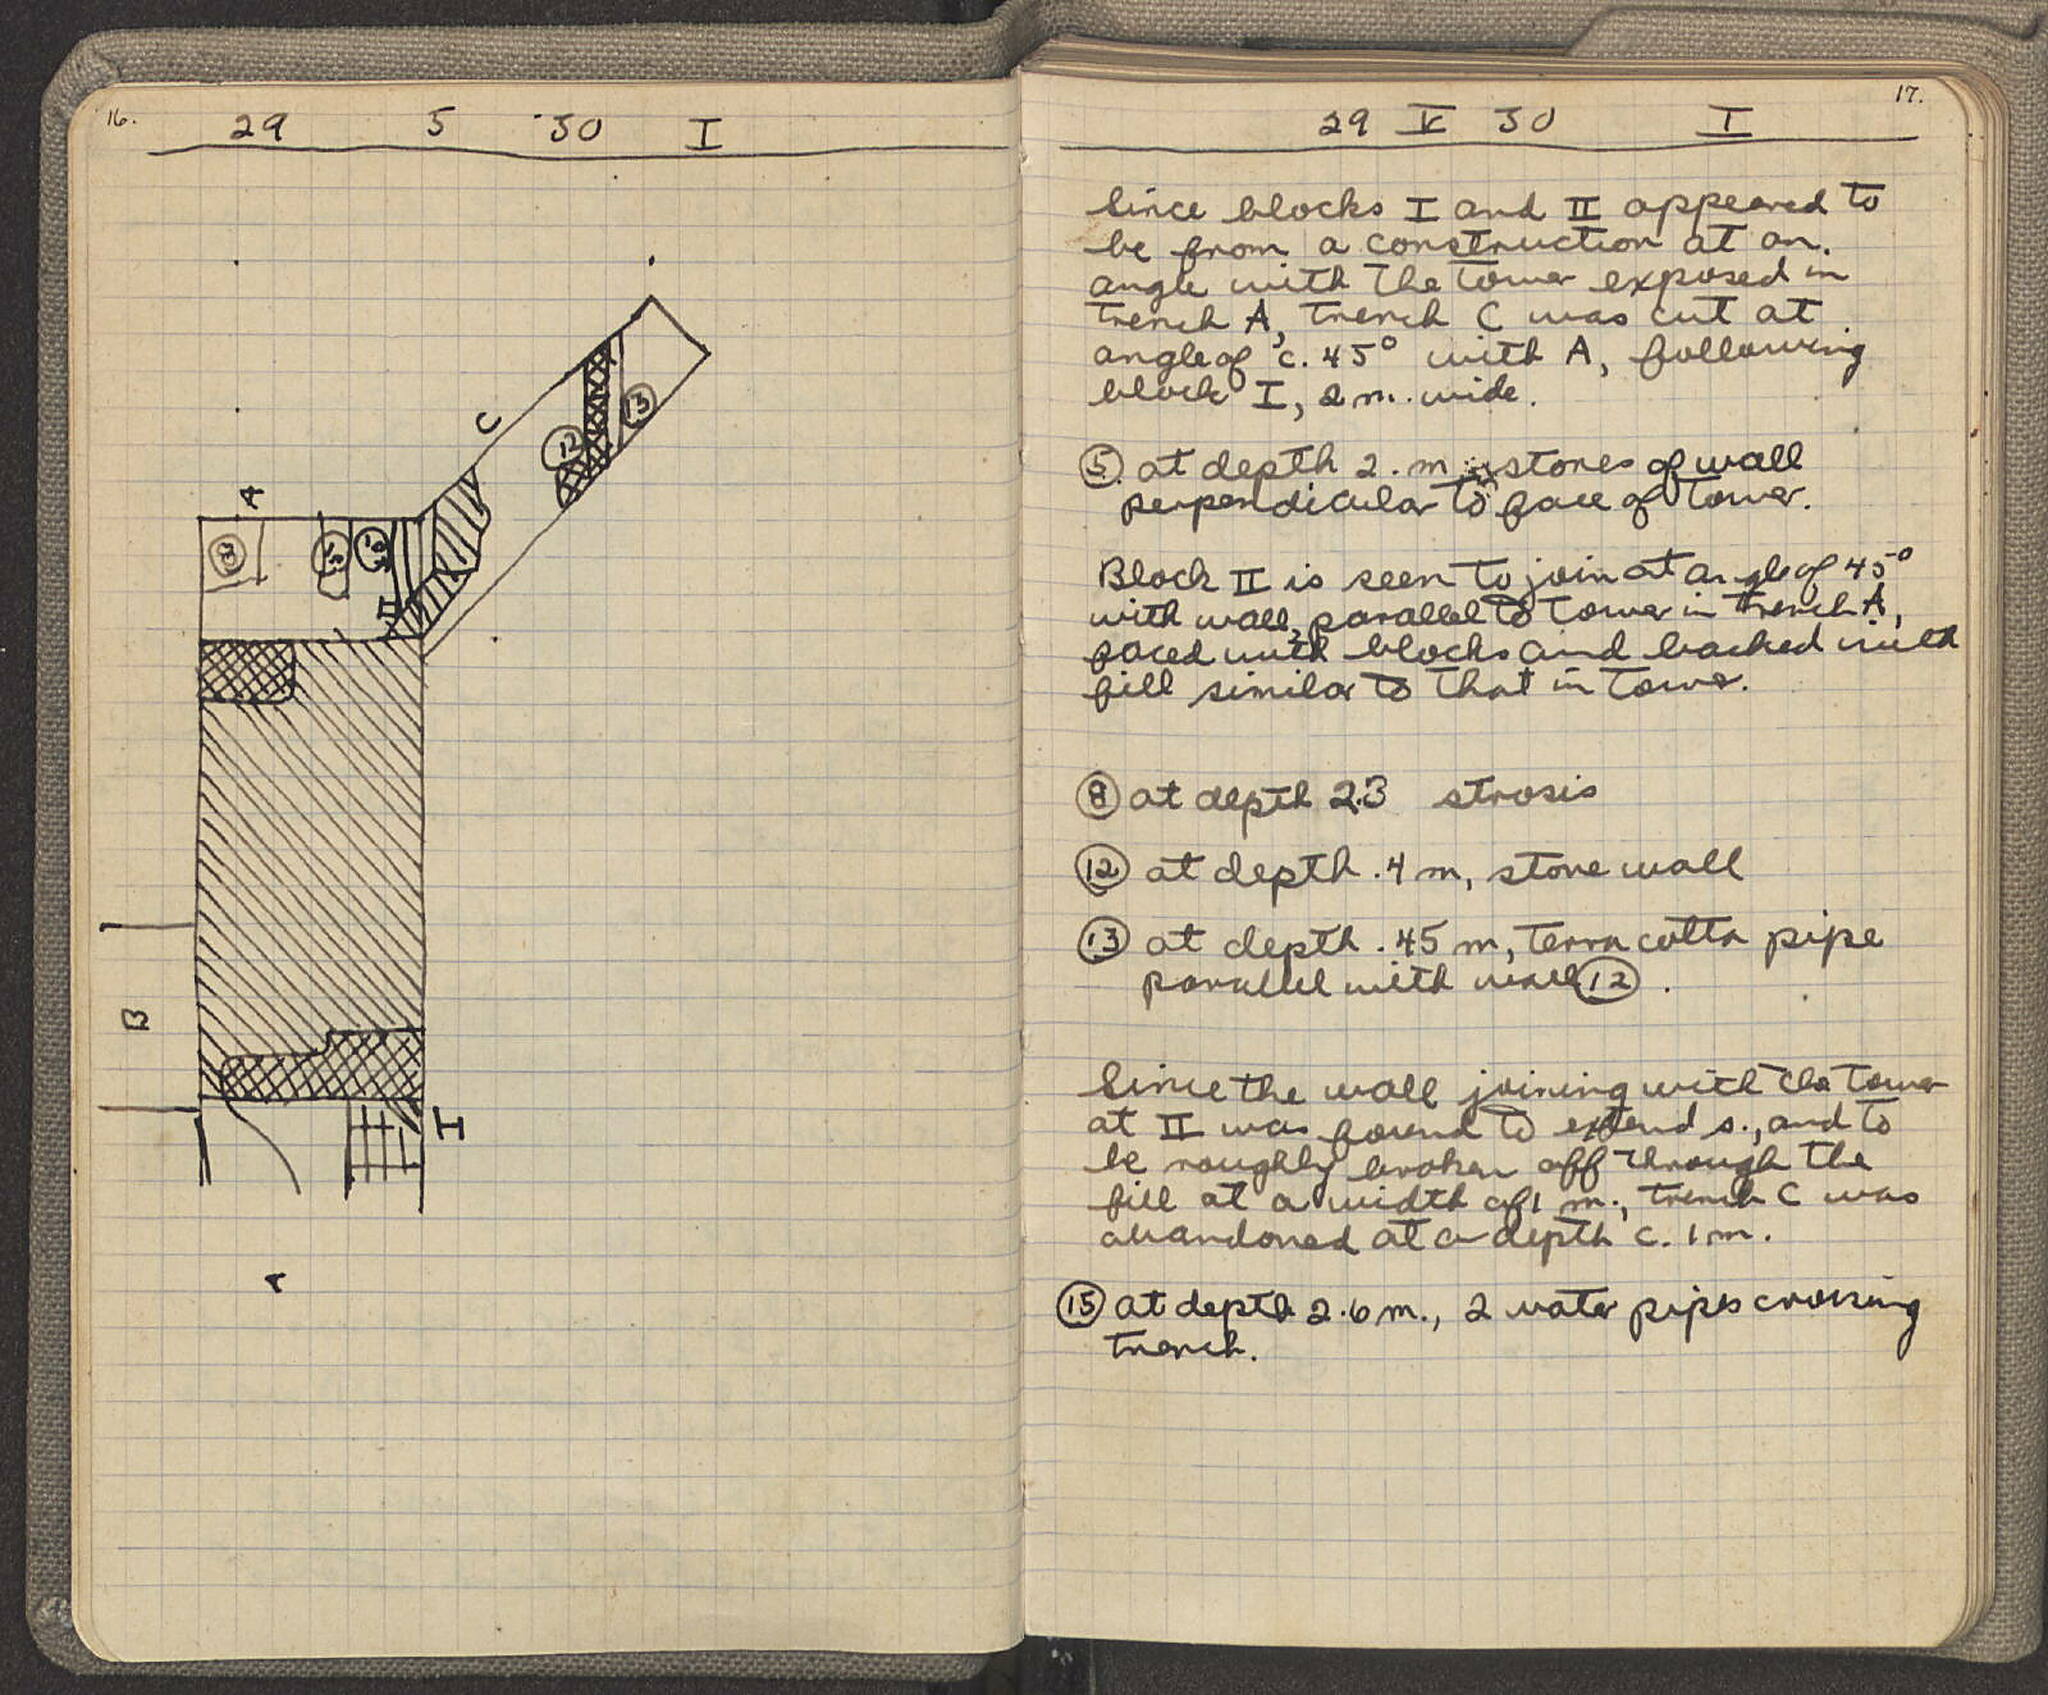 16.
29 5 30 I
C
12
13
A
8
15
II
B
I
A
17.
29 V 30 I
Since blocks I and II appeared to
be from a construction at an
angle with the tower exposed in
trench A, trench C was cut at
angle of c. 45° with A, following
block I, 2 m. wide.
5 at depth 2. m stones of wall
perpendicular to face of tower.
Block II is seen to join at angle of 45°
with wall, parallel to tower in trench A,
faced with blocks and backed with
fill similar to that in tower.
8 at depth 2.3 strosis
12 at depth .4 m, stone wall
13 at depth .45 m, terra cotta pipe
parallel with wall 12.
Since the wall joining with the tower
at II was found to extend s., and to
be roughly broken off through the
fill at a width of 1 m., trench C was
abandoned at a depth c. 1 m.
15 at depth 2.6 m., 2 water pipes crossing
trench.